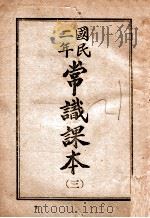 國民
二年
常識課本
(三)